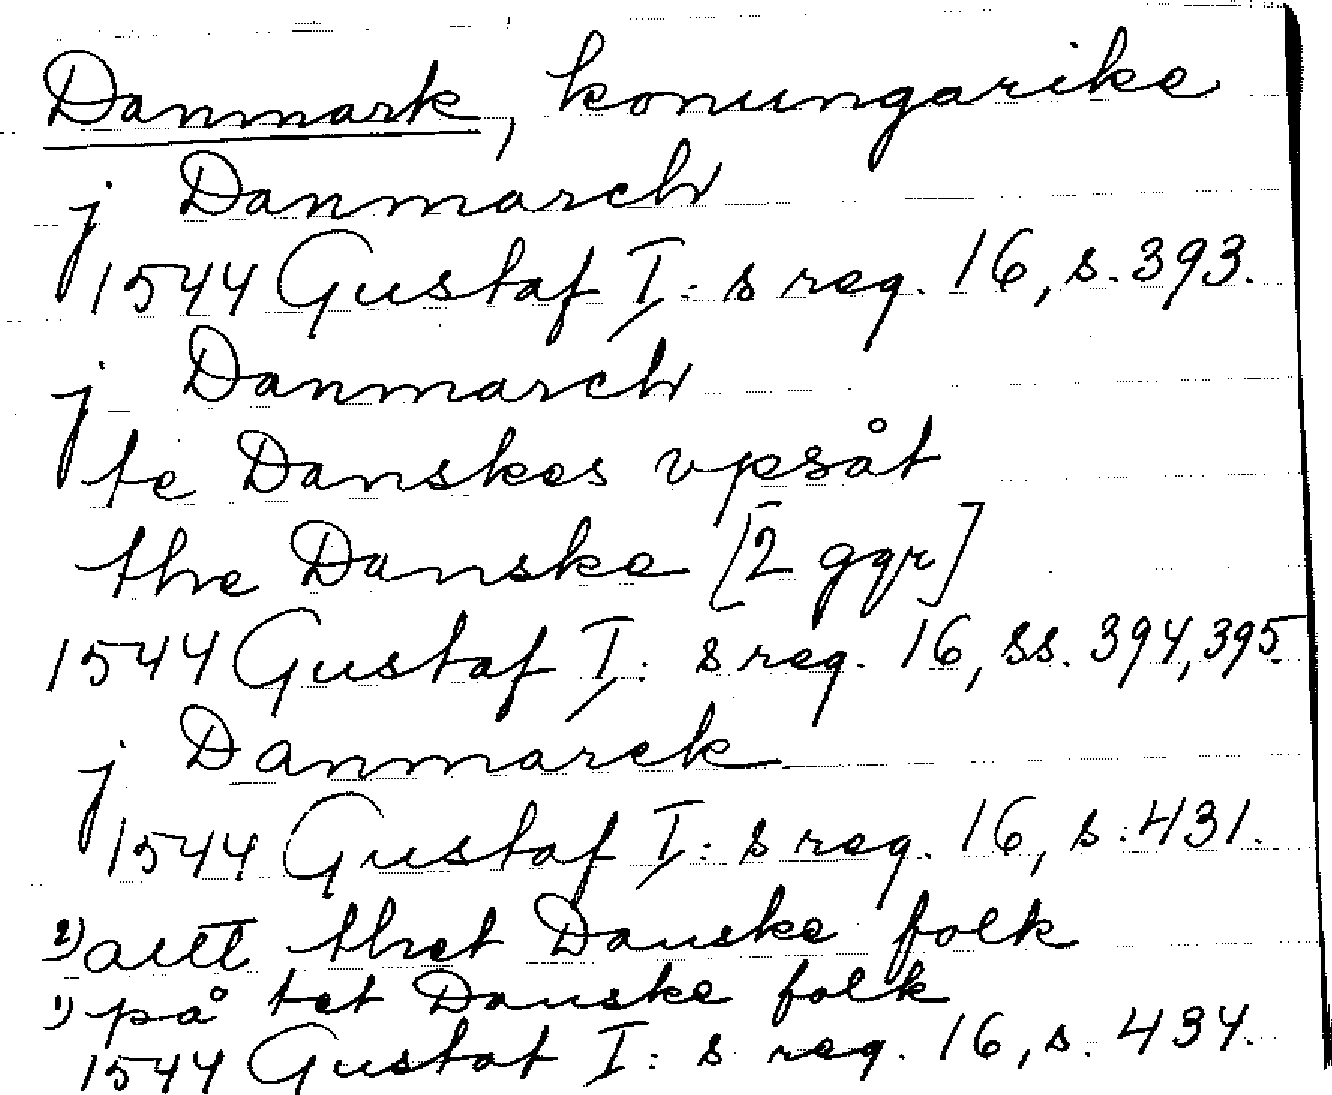 Danmark, konungarike
j Danmarch
1544 Gustaf I:s reg. 16, s. 393.
j Danmarch
te Danskes vpsåt
the Danske [2 ggr]
1544 Gustaf I:s reg. 16, ss. 394, 395.
j Danmarck
1544 Gustaf I:s reg. 16, s. 431.
2) alltt thet Danske folk
1) på tet Danske folk
1544 Gustaf I:s reg. 16, s. 434.